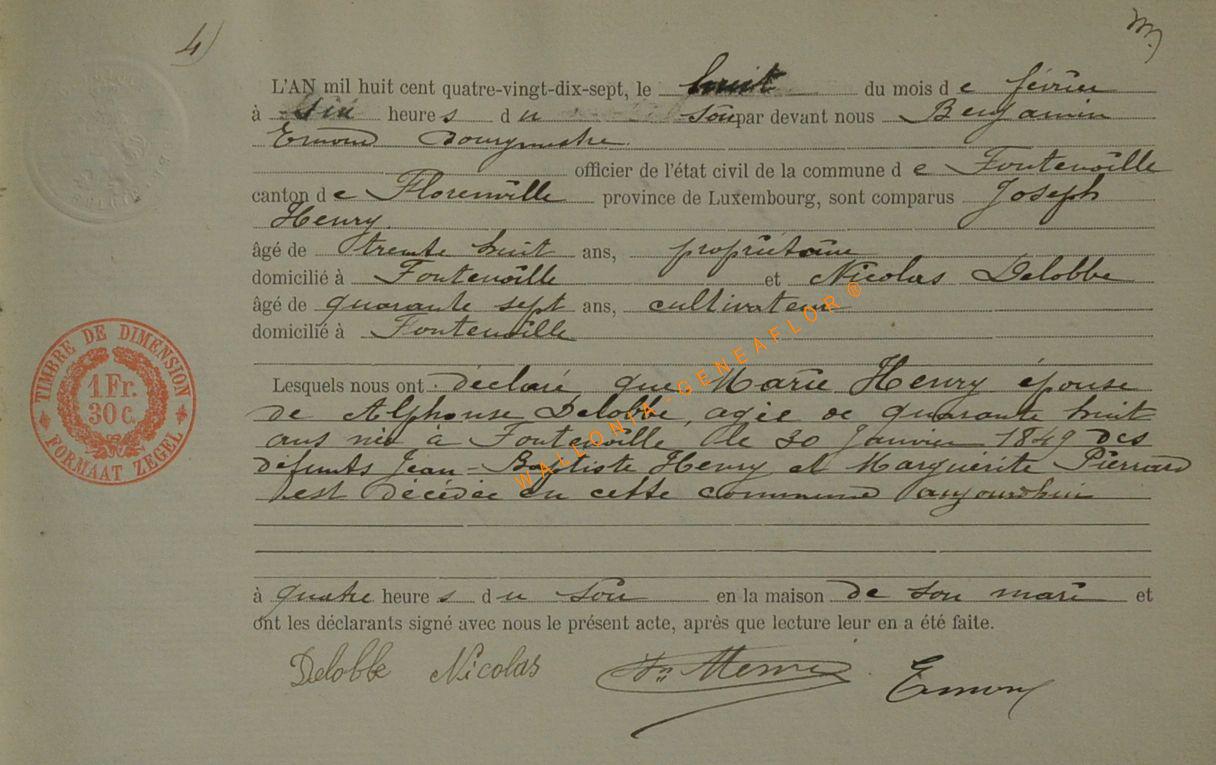 4)
L'AN mil huit cent quatre-vingt-dix-sept, le huit du mois de février
à six heures du soir par devant nous Benjamin
Emond bourgmestre
officier de l'état civil de la commune de Fontenoille
canton de Florenville province de Luxembourg, sont comparus Joseph
Henry
âgé de trente huit ans, propriétaire
domicilié à Fontenoille et Nicolas Delobbe
âgé de quarante sept ans, cultivateur
domicilié à Fontenoille
Lesquels nous ont déclaré que Marie Henry épouse
de Alphonse Delobbe, agée de quarante huit
ans née à Fontenoille, le 20 Janvier 1849 des
défunts Jean-Baptiste Henry et Marguérite Pierrard
est décédée en cette commune aujourdhui
à quatre heures du soir en la maison de son mari et
ont les déclarants signé avec nous le présent acte, après que lecture leur en a été faite.
Delobbe Nicolas Henri Emond
TIMBRE DE DIMENSION
1 Fr.
30 C.
FORMAAT ZEGEL
WALLONIA-GENEAFLOR ®